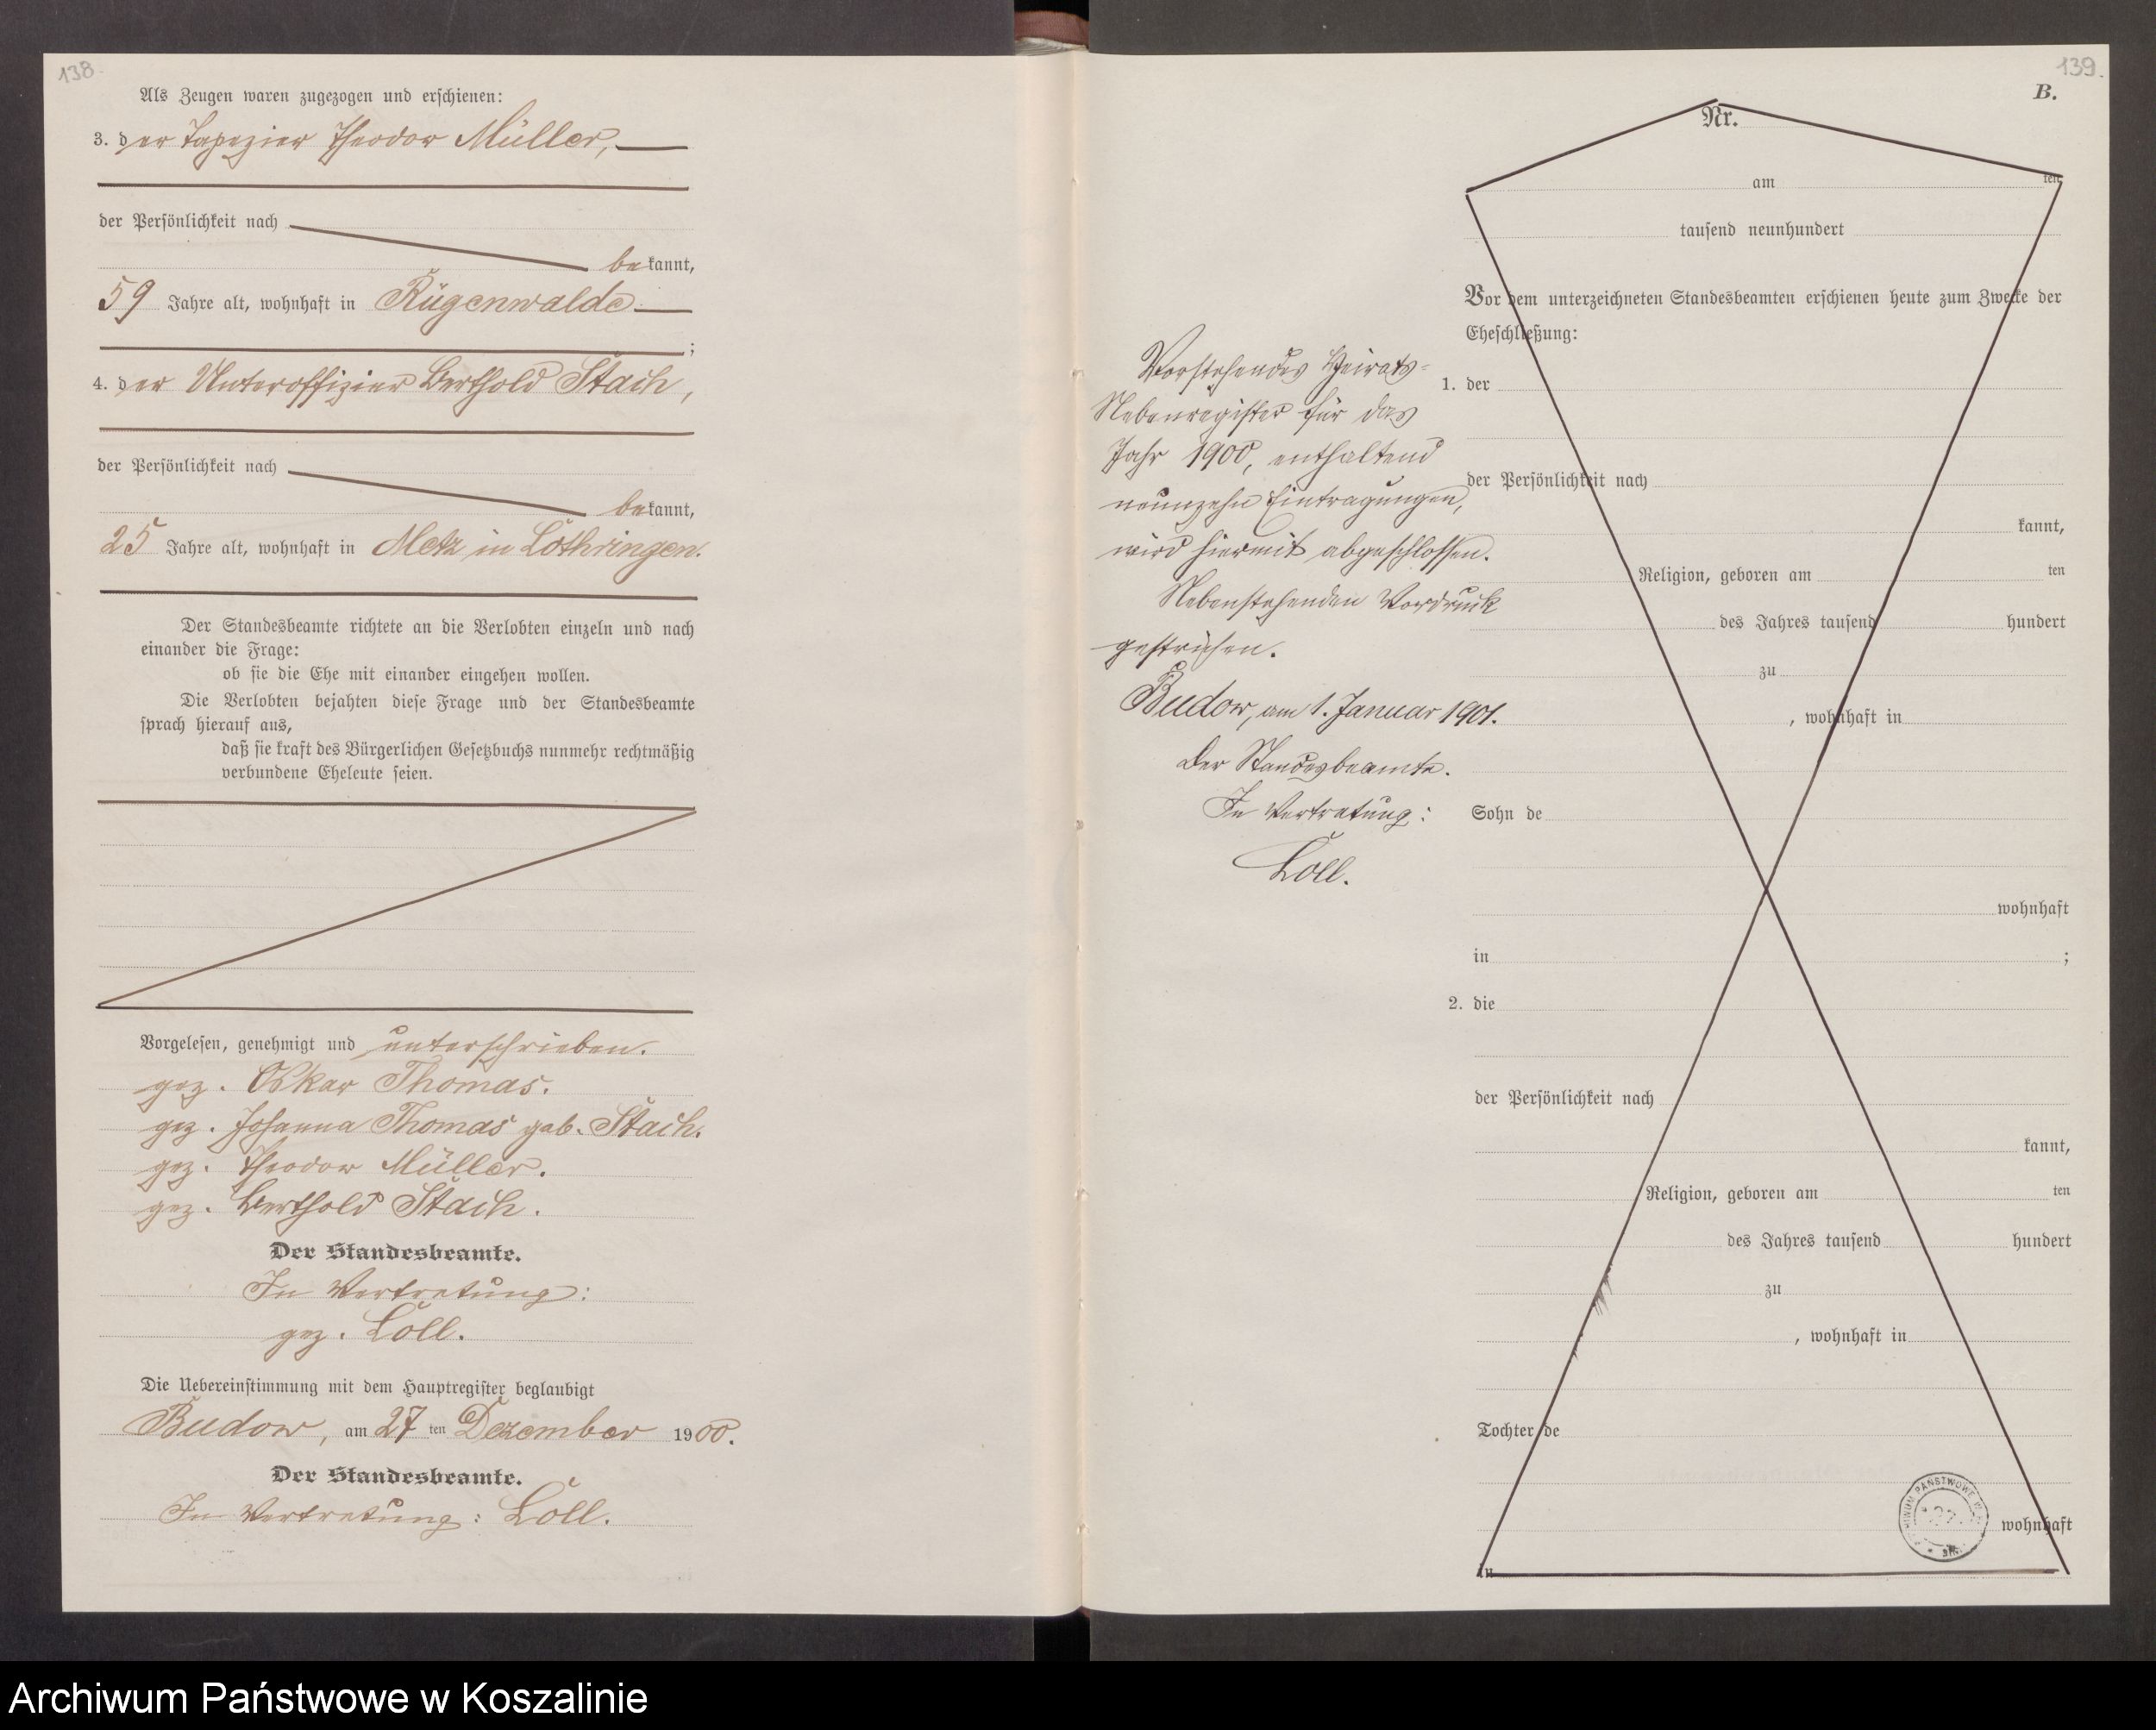 138.
Als Zeugen waren zugezogen und erschienen:
3. der Tapezier Theodor Müller,
der Persönlichkeit nach
bekannt,
59 Jahre alt, wohnhaft in Rügenwalde
;
4. der Unteroffizier Berthold Stach,
der Persönlichkeit nach
bekannt,
25 Jahre alt, wohnhaft in Metz in Lothringen.
Der Standesbeamte richtete an die Verlobten einzeln und nach
einander die Frage:
ob sie die Ehe mit einander eingehen wollen.
Die Verlobten bejahten diese Frage und der Standesbeamte
sprach hierauf aus,
daß sie kraft des Bürgerlichen Gesetzbuchs nunmehr rechtmäßig
verbundene Eheleute seien.
Vorgelesen, genehmigt und unterschrieben.
gez. Oskar Thomas.
gez. Johanna Thomas geb. Stach.
gez. Theodor Müller.
gez. Berthold Stach.
Der Standesbeamte.
In Vertretung:
gez. Loll.
Die Uebereinstimmung mit dem Hauptregister beglaubigt
Budow, am 27 ten Dezember 1900.
Der Standesbeamte.
In Vertretung: Loll.
139.
B.
Vorstehendes Heirats-
Nebenregister für das
Jahr 1900, enthaltend
neunzehn Eintragungen,
wird hiermit abgeschlossen.
Nebenstehenden Vordruck
gestrichen.
Budow, am 1. Januar 1901.
Der Standesbeamte.
In Vertretung:
Loll.
Nr.
am ten
tausend neunhundert
Vor dem unterzeichneten Standesbeamten erschienen heute zum Zwecke der
Eheschließung:
1. der
der Persönlichkeit nach
kannt,
Religion, geboren am ten
des Jahres tausend hundert
zu
, wohnhaft in
Sohn de
wohnhaft
in ;
2. die
der Persönlichkeit nach
kannt,
Religion, geboren am ten
des Jahres tausend hundert
zu
, wohnhaft in
Tochter de
wohnhaft
in
Archiwum Państwowe w Koszalinie